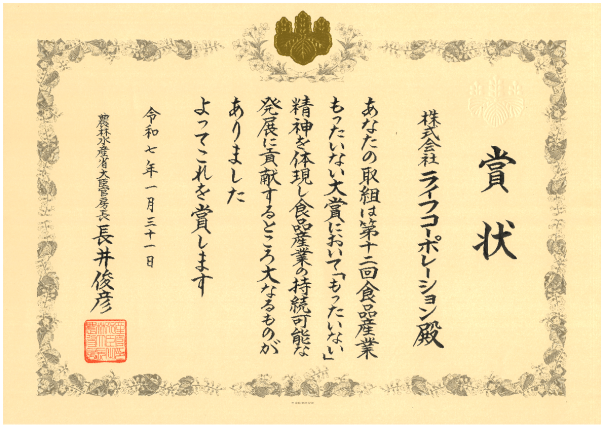 賞状
株式会社 ライフコーポレーション 殿
あなたの取組は第十二回食品産業
もったいない大賞において「もったいない」
精神を体現し食品産業の持続可能な
発展に貢献するところ大なるものが
ありました
よってこれを賞します
令和七年一月三十一日
農林水産省大臣官房長 長井俊彦